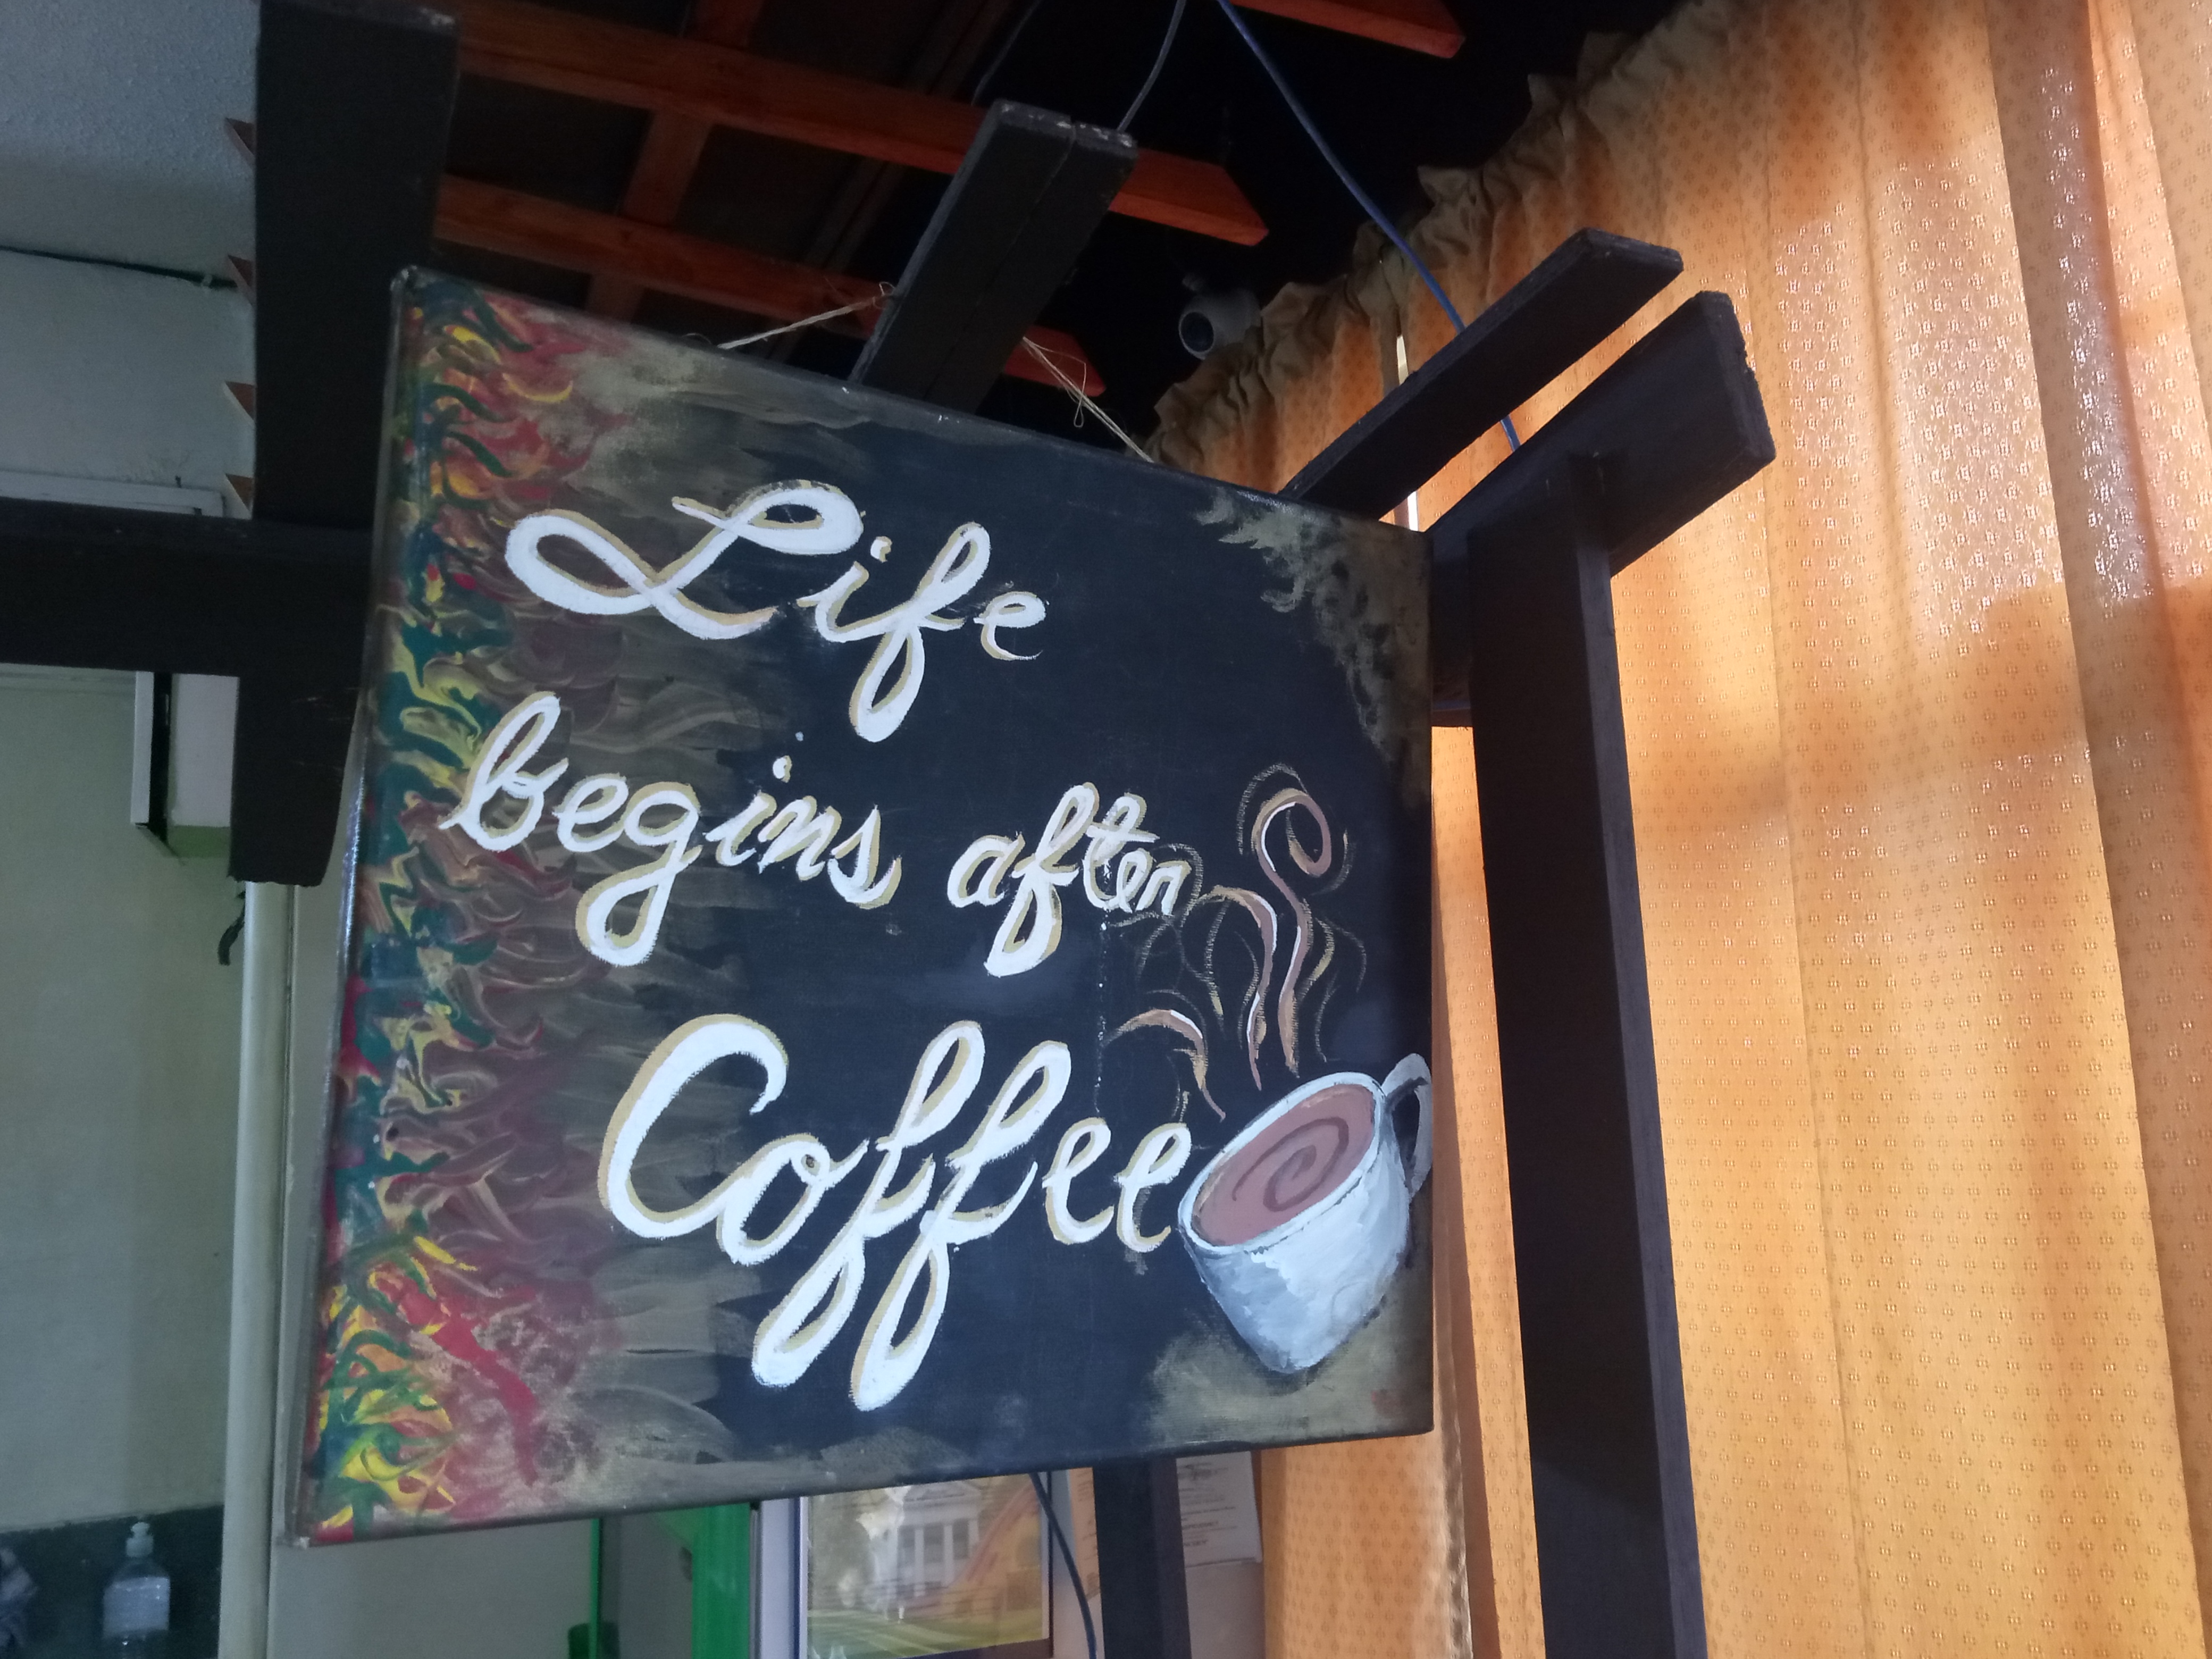 Life
begins after
Coffee